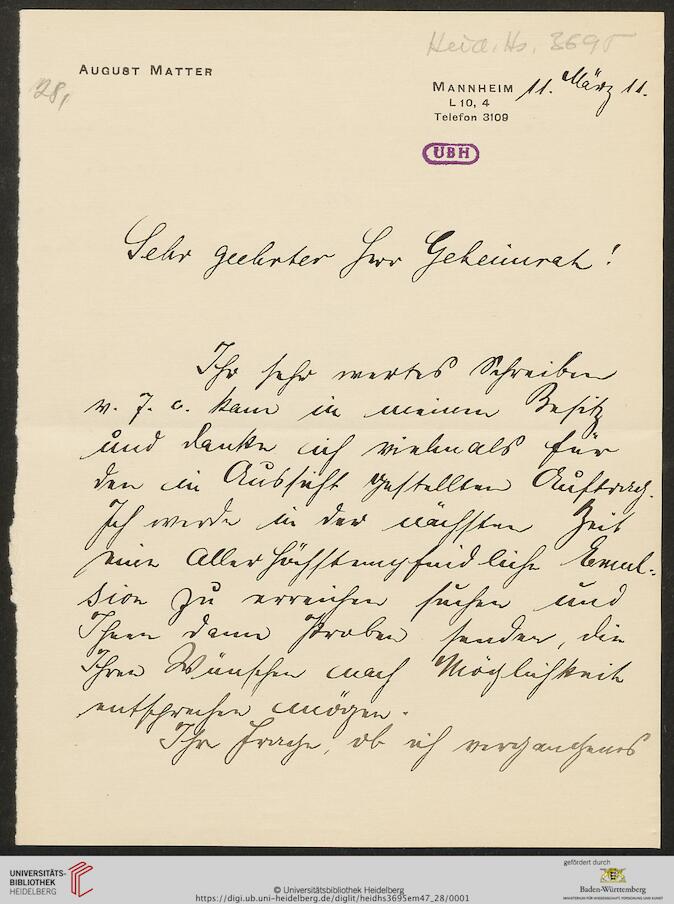 Heid. Hs. 3695
28,
AUGUST MATTER
MANNHEIM 11. März 11.
L 10, 4
Telefon 3109
UBH
Sehr geehrter Herr Geheimrat!
Ihr sehr wertes Schreiben
v. 7. c. kam in meinen Besitz
und danke ich vielmals für
den in Aussicht gestellten Auftrag.
Ich werde in der nächsten Zeit
eine Allerhöchstempfindliche Emul-
sion zu erreichen suchen und
Ihnen dann Proben senden, die
Ihren Wünschen nach Möglichkeit
entsprechen mögen.
Ihre Frage, ob ich vergangenes
UNIVERSITÄTS-
BIBLIOTHEK
HEIDELBERG
© Universitätsbibliothek Heidelberg
https://digi.ub.uni-heidelberg.de/diglit/heidhs3695em47_28/0001
gefördert durch
Baden-Württemberg
MINISTERIUM FÜR WISSENSCHAFT, FORSCHUNG UND KUNST